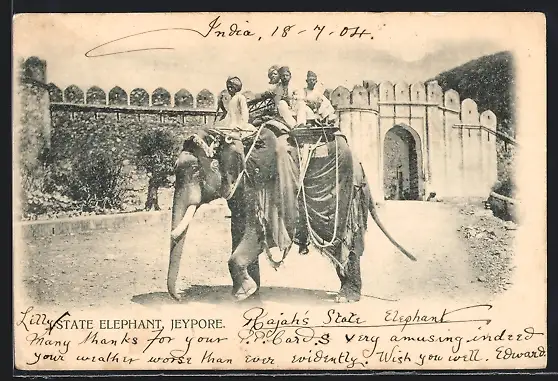 India, 18-7-04.
Lilly STATE ELEPHANT, JEYPORE. Rajah's State Elephant
Many Thanks for your P.P. Cards. Very amusing indeed
your weather worse than ever evidently. Wish you well. Edward.